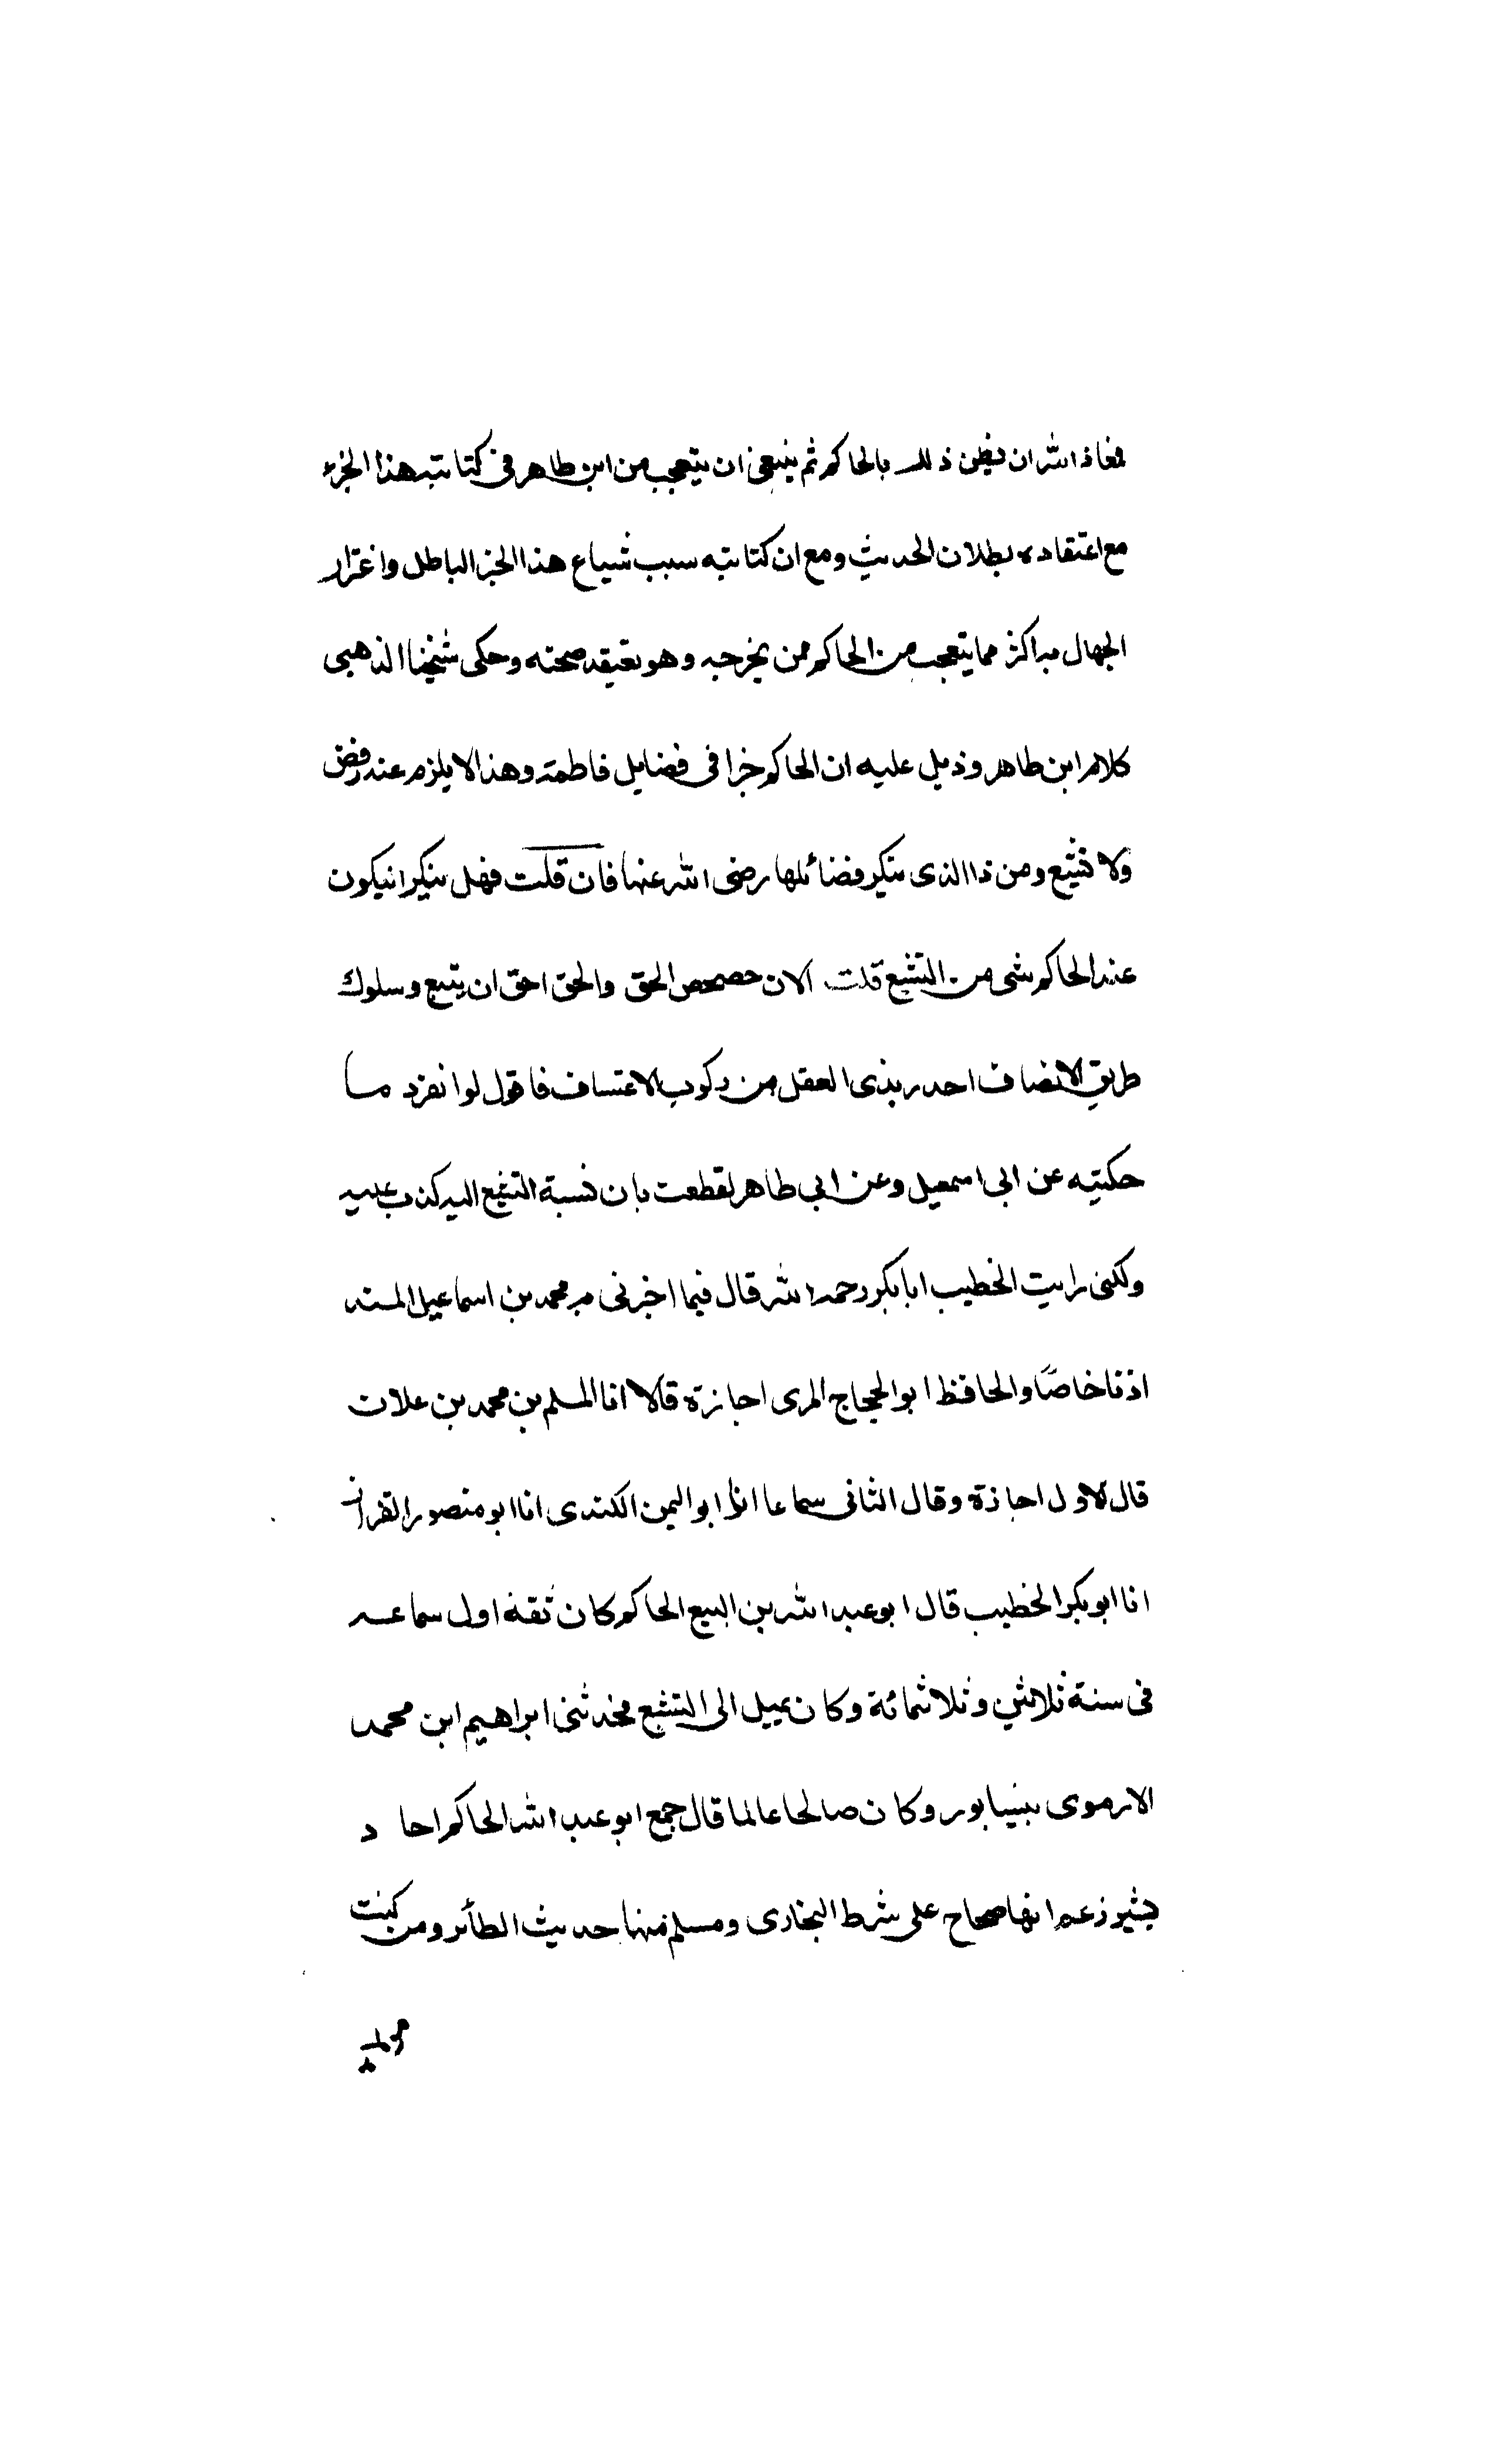 فمعاذ الله ان يظن ذلك بالحاكم ثم ينبغى ان يتعجب من ابن طاهر فى كتابته هذا الجزء
مع اعتقاده بطلان الحديث ومع ان كتابته سبب شياع هذا الخبر الباطل واغترار
الجهال به اكثر مما يتعجب من الحاكم ممن يخرجه وهو يعتقد صحته وحكى شيخنا الذهبى
كلام ابن طاهر وذيل عليه ان الحاكم جزا فى فضايل فاطمة وهذا لا يلزم عنه رفض
ولا تشيع ومن ذا الذى ينكر فضائلها رضى الله عنها فان قلت فهل ينكر ان يكون
عند الحاكم شى من التشيع قلت الان حصحص الحق والحق احق ان يتبع وسلوك
طريق الانصاف احدر بذى العقل من ركوب الاعتساف فاقول لو انفرد ما
حكيته عن ابى اسمعيل وعن ابي طاهر لقطعت بان نسبة التشيع اليه كذب عليه
ولكنى رايت الخطيب ابا بكر رحمه الله قال فيما اخبرنى به محمد بن اسماعيل المسند
اذنا خاصًا والحافظ ابو الحجاج المزى اجازة قالا انا المسلم بن محمد بن علان
قال الاول اجازة وقال الثانى سماعا انا ابو اليمن الكندى انا ابو منصور القزاز
انا ابو بكر الخطيب قال ابو عبد الله بن البيع الحاكم كان ثقة اول سماعه
فى سنة ثلاثين وثلاثمائة وكان يميل الى التشيع فحدثنى ابراهيم ابن محمد
الارموى بنيسابور وكان صالحا عالما قال جمع ابو عبد الله الحاكم احاد
يث زعم انها صحاح على شرط البخارى ومسلم منها حديث الطائر ومن كنت
مولاه